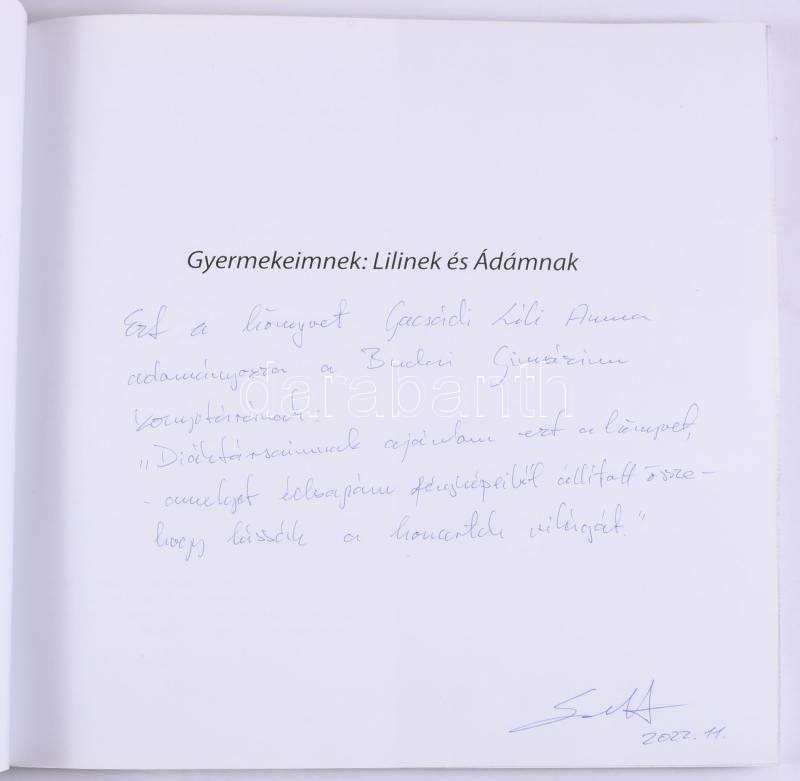 Gyermekeimnek: Lilinek és Ádámnak
Ezt a könyvet Gacsádi Lili Anna
adományozza a Budai Gimnázium
könyvtárának:
"Diáktársaimnak ajánlom ezt a könyvet,
- amelyet édesapám fényképeiből állított össze -
hogy lássák a koncertek világát."
2022. 11.
darabanth